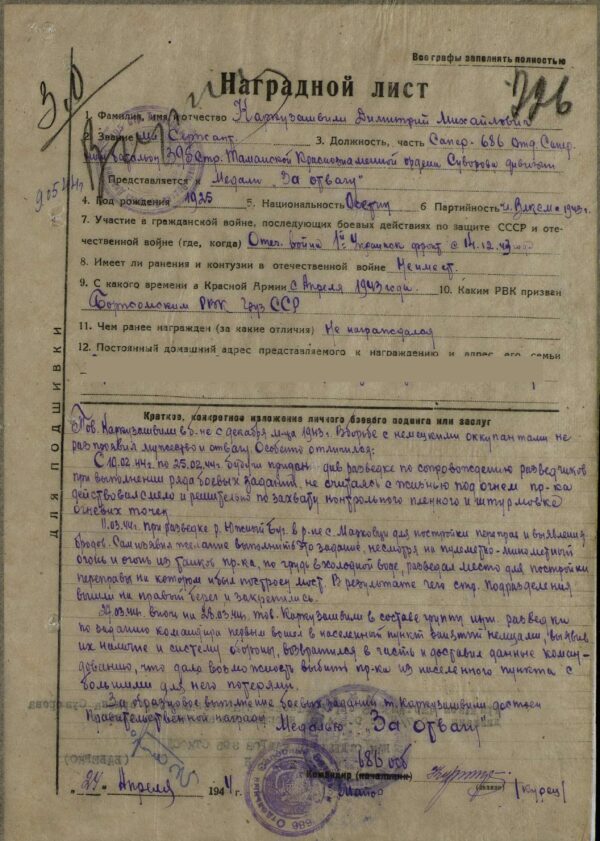 Все графы заполнять полностью
Наградной лист
3,0
326
1. Фамилия, имя и отчество Каркузашвили Димитрий Михайлович
2. Звание мл. Сержант 3. Должность, часть Сапер - 686 отд. Сапер.
батальон 395 стр. Таманской Краснознаменной ордена Суворова дивизии
Представляется к Медали „За отвагу"
4. Год рождения 1925 5. Национальность Осетин 6 Партийность чл. ВЛКСМ 1943 г.
7. Участие в гражданской войне, последующих боевых действиях по защите СССР и оте-
чественной войне (где, когда) Отеч. война 1й Украинск. фронт с 14.12.43
8. Имеет ли ранения и контузии в отечественной войне Не имеет.
9. С какого времени в Красной Армии с Апреля 1943 года. 10. Каким РВК призван
Боржомским РВК Груз ССР
11. Чем ранее награжден (за какие отличия) Не награждался
12. Постоянный домашний адрес представляемого к награждению и адрес его семьи
ДЛЯ ПОДШИВКИ
Краткое, конкретное изложение личного боевого подвига или заслуг
Тов. Каркузашвили в б-не с декабря м-ца 1943 г. В борьбе с немецкими оккупантами не
раз проявил мужество и отвагу. Особенно отличился:
С 10.02.44г. по 25.02.44г. Будучи придан див. разведке по сопровождению разведчиков
при выполнении ряда боевых заданий, не считаясь с жизнью под огнем пр-ка
действовал смело и решительно по захвату контрольного пленного и штурмовке
огневых точек.
11.03.44г. при разведке р. Южный Буг в р-не с. Мазковцы для постройки переправ и выявления
бродов. Сам изявил желание выполнить это задание, несмотря на пулеметно-минометной
огонь и огонь из танков пр-ка, по грудь в холодной воде, разведал место для постройки
переправы на котором и был построен мост. В результате чего стр. Подразделения
вышли на правый берег и закрепились.
27.03.44г. в ночь на 28.03.44г. тов. Каркузашвили в составе группы инж. разведки
по заданию командира первым вошел в населенный пункт занятый немцами, выявив
их наличие и систему обороны, возвратился в часть и доставил данные коман-
дованию, что дало возможность выбить пр-ка из населенного пункта с
большими для него потерями.
За образцовое выполнение боевых заданий т. Каркузашвили достоен
Правительственной награды Медалью „За отвагу"
686 осб
Командир (начальник)
Майор (звание) /Курец/
„24" Апреля 1944 г.